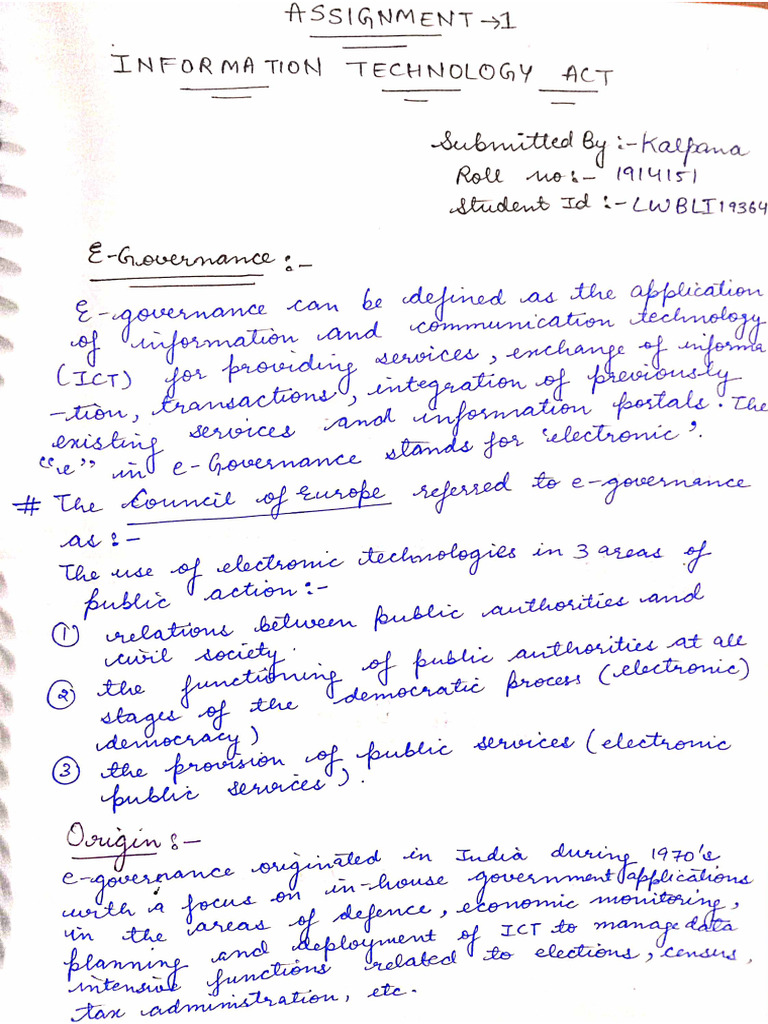 ASSIGNMENT →1
INFORMATION TECHNOLOGY ACT
Submitted By :- Kalpana
Roll no :- 1914151
Student Id :- LWBLI19364
E-Governance :-
E-governance can be defined as the application
of information and communication technology
(ICT) for providing services, exchange of informa
-tion, transactions, integration of previously
existing services and information portals. The
"e" in e-Governance stands for 'electronic'.
# The Council of Europe referred to e-governance
as :-
The use of electronic technologies in 3 areas of
public action :-
① relations between public authorities and
civil society.
② the functioning of public authorities at all
stages of the democratic process (electronic)
democracy)
③ the provision of public services (electronic
public services).
Origin :-
e-governance originated in India during 1970's
with a focus on in-house government applications
in the areas of defence, economic monitoring,
planning and deployment of ICT to manage data
intensive functions related to elections, census,
tax administration, etc.